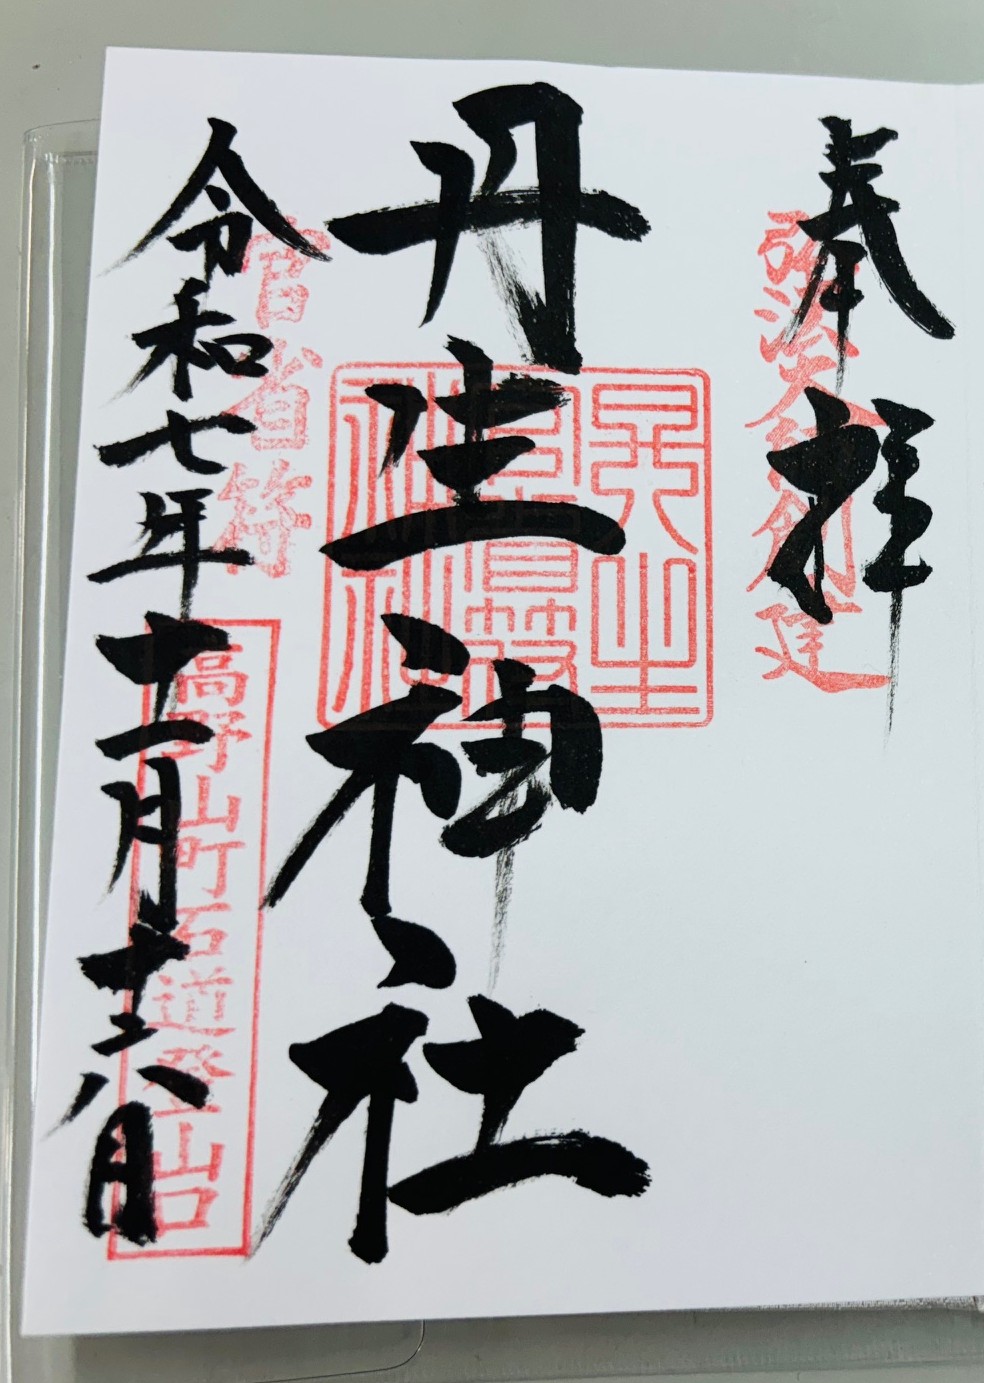 奉拝
弘法大師創建
丹生神社
丹生
官省符
神社
官省符
令和七年十二月
高野山町石道登山口